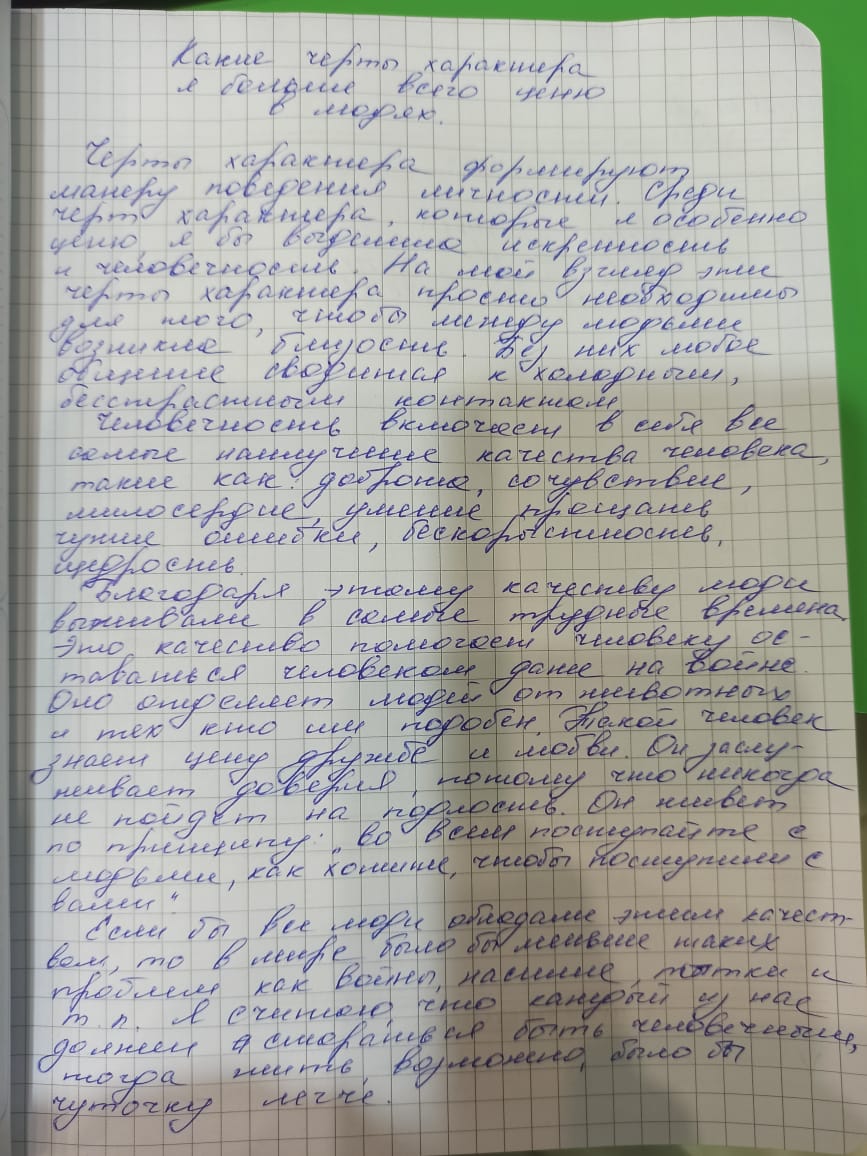 Какие черты характера
я больше всего ценю
в людях.
Черты характера формируют
манеру поведения личности. Среди
черт характера, которые я особенно
ценю, я бы выделила искренность
и человечность. На мой взгляд эти
черты характера просто необходимы
для того, чтобы между людьми
возникла близость. Без них любое
общение сводится к холодным,
бесстрастным контактам
Человечность включает в себя все
самые наилучшие качества человека,
такие как: доброта, сочувствие,
милосердие, умение прощать
чужие ошибки, бескорыстность,
щедрость.
Благодаря этому качеству люди
выживали в самые трудные времена.
Это качество помогает человеку ос-
таваться человеком даже на войне.
Оно отделяет людей от животных
и тех кто им подобен. Такой человек
знает цену дружбе и любви. Он заслу-
живает доверия, потому что никогда
не пойдёт на подлость. Он живет
по принципу: „во всем поступайте с
людьми, как хотите, чтобы поступили с
вами"
Если бы все люди обладали этим качест-
вом, то в мире было бы меньше таких
проблем как войны, насилие, пытки и
т.п. Я считаю, что каждый из нас
должен стараться быть человечным,
тогда жить, возможно, было бы
чуточку легче.